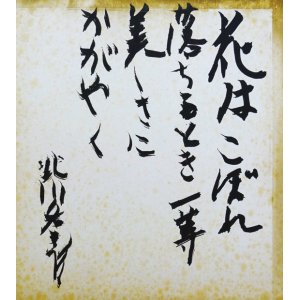 花はこぼれ
落ちるとき一茎
美しさに
かがやく
北川